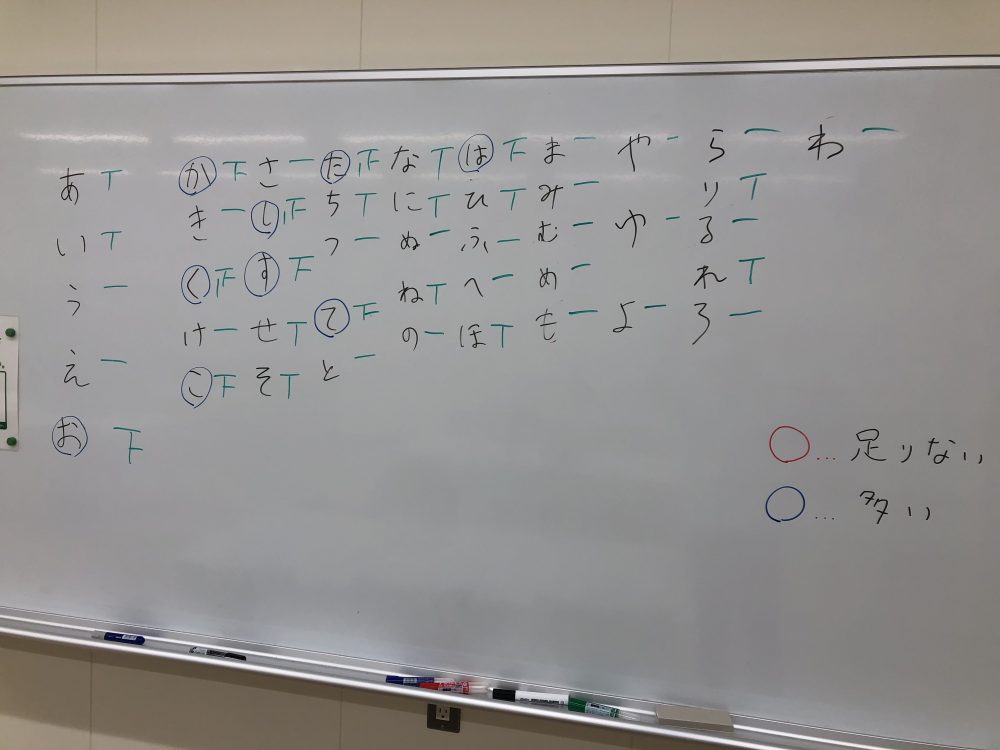 あ T か 下 さ 一 た 正 な T は 下 ま 一 や 一 ら 一 わ 一
い T き 一 し 正 ち T に T ひ T み 一 り T
う 一 く 正 す 下 つ 一 ぬ 一 ふ 一 む 一 ゆ 一 る 一
え 一 け 一 せ T て 下 ね T へ 一 め 一 れ T
お 下 こ 下 そ T と 一 の 一 ほ T も 一 よ 一 ろ 一
○… 足りない
○… 多い